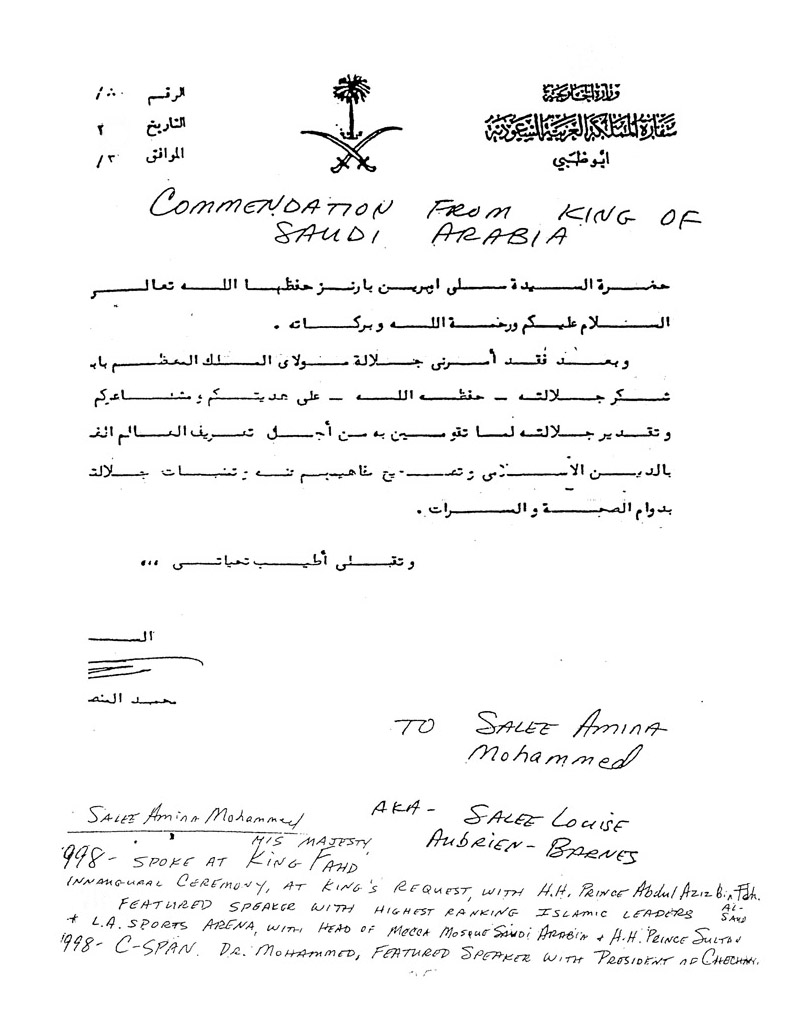 وزارة الخارجية
سفارة المملكة العربية السعودية
ابوظبي
الرقم
التاريخ ٢
الموافق ٣/
COMMENDATION FROM KING OF
SAUDI ARABIA
حضرة السيدة سلى اوبرين بارنز حفظها الله تعالى
السلام عليكم ورحمة الله وبركاته .
وبعد فقد أمرنى جلالة مولاى الملك المعظم
شكر جلالته - حفظه الله - على هديتكم ومشاعركم
وتقدير جلالته لما تقومين به من أجل تعريف العالم
بالدين الاسلامى وتصحيح مفاهيم عنه وتمنيات جلالت
بدوام الصحة والسرات .
وتقبلى أطيب تحياتى ،،،
الس
محمد المنص
TO SALEE AMINA
MOHAMMED
AKA - SALEE LOUISE
AUBRIEN - BARNES
SALEE AMINA MOHAMMED
HIS MAJESTY
1998 - SPOKE AT KING FAHD
INNAUGUAAL CEREMONY, AT KING'S REQUEST, WITH H.H. PRINCE ABDUL AZIZ BIN FAH.
FEATURED SPEAKER WITH HIGHEST RANKING ISLAMIC LEADERS AL-SAUD
* L.A. SPORTS ARENA, WITH HEAD OF MECCA MOSQUE SAUDI ARABIA + H.H. PRINCE SULTAN
1998 - C-SPAN. DR. MOHAMMED, FEATURED SPEAKER WITH PRESIDENT OF CHECHNY.